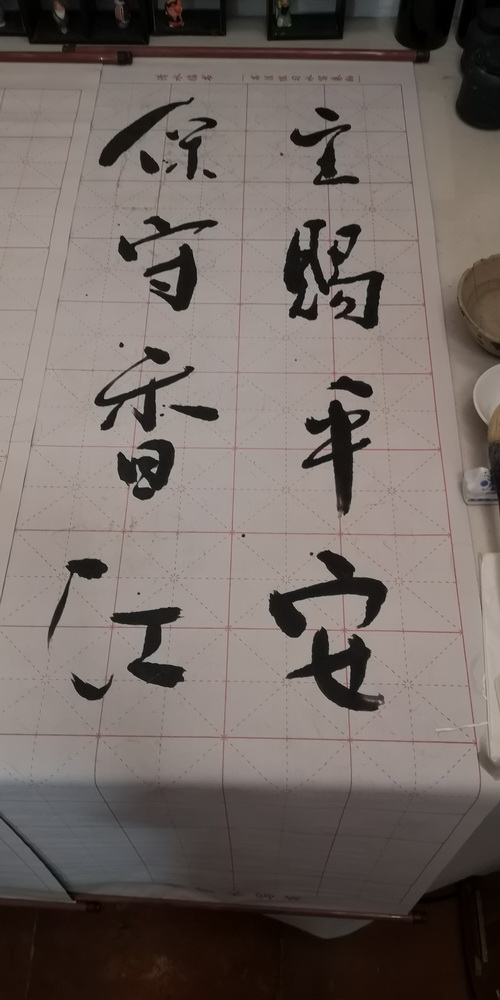 主赐平安
保守香江